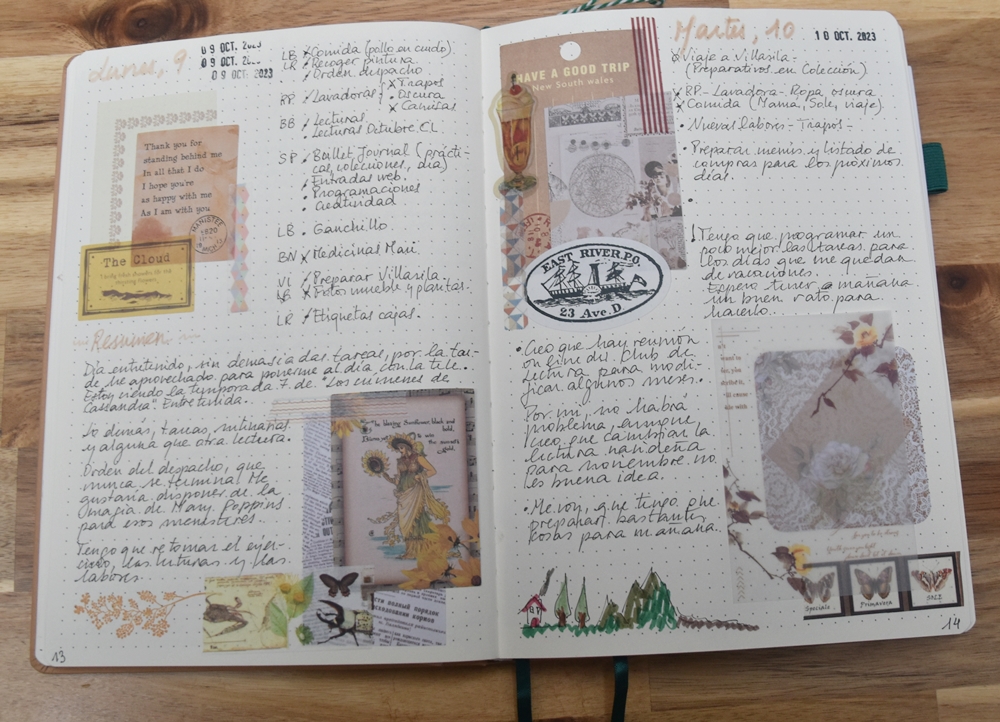 Lunes, 9
09 OCT. 2023
09 OCT. 2023
09 OCT. 2023
LB Comida (pollo en crudo)
LR Recoger pintura
Orden despacho
RP Lavadoras
Trapos
Oscura
Camisetas
BB Lecturas
Lecturas Octubre. CL
SP Bullet Journal (prácti-
cas, colecciones, día)
Entradas web.
Programaciones
Creatividad
LB • Ganchillo
BN Medicinal Mari
VI Preparar Villasila
LB Fotos mueble y plantas.
LR Etiquetas cajas.
Thank you for
standing behind me
In all that I do
I hope you're
as happy with me
As I am with you
MANISTEE
1820
The Cloud
Resumen
Día entretenido, sin demasiadas tareas, por la tar-
de he aprovechado para ponerme al día con la tele.
Estoy viendo la temporada 7 de "Los crímenes de
Cassandra". Entretenida.
Lo demás, tareas rutinarias
y alguna que otra lectura.
Orden del despacho, que
nunca se termina! Me
gustaría disponer de la
magia de Mary Poppins
para esos menesteres.
Tengo que retomar el ejer-
cicio, lecturas y las
labores.
13
Martes, 10
10 OCT. 2023
HAVE A GOOD TRIP
New South wales
Viaje a Villasila
(Preparativos en Colección)
RP - Lavadora - Ropa oscura
Comida (Mamá, Sole, viaje)
• Nuevas labores - Trapos -
• Preparar menús y listado de
compras para los próximos
días.
! Tengo que programar un
poco mejor las tareas para
los días que me quedan
de vacaciones.
Espero tener mañana
un buen rato para
hacerlo.
EAST RIVER.P.O.
23 Ave. D.
• Creo que hay reunión
on line del Club de
Lectura para modi-
ficar algunos meses.
Por mi, no habrá
problema, aunque
creo que cambiar la
lectura navideña
para noviembre no
es buena idea.
• Me voy, que tengo que
preparar bastantes
cosas para mañana.
Speciale
Primavera
14